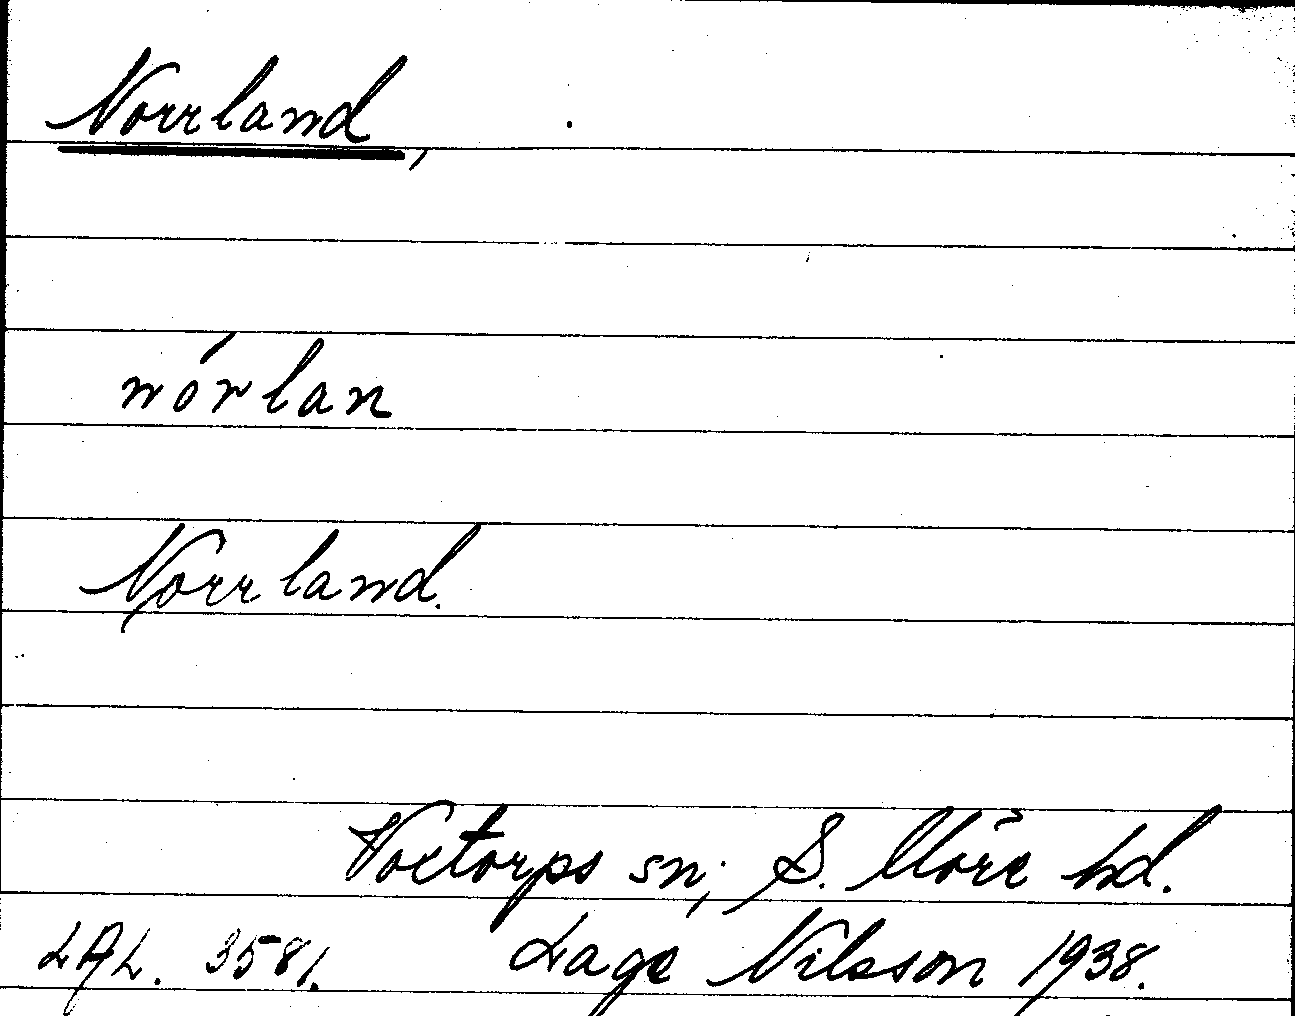 Norrland,
nórlan
Norrland.
Voxtorps sn; S. Möre hd.
LAL. 3581. Lage Nilsson 1938.